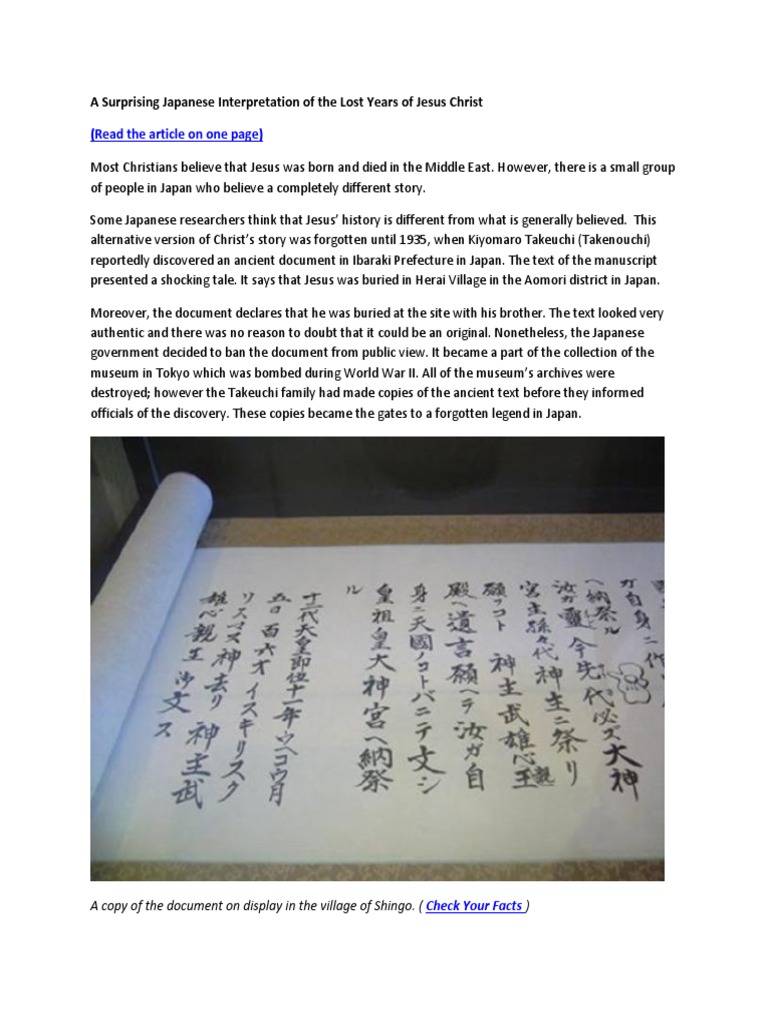 A Surprising Japanese Interpretation of the Lost Years of Jesus Christ
(Read the article on one page)
Most Christians believe that Jesus was born and died in the Middle East. However, there is a small group
of people in Japan who believe a completely different story.
Some Japanese researchers think that Jesus’ history is different from what is generally believed.  This
alternative version of Christ’s story was forgotten until 1935, when Kiyomaro Takeuchi (Takenouchi)
reportedly discovered an ancient document in Ibaraki Prefecture in Japan. The text of the manuscript
presented a shocking tale. It says that Jesus was buried in Herai Village in the Aomori district in Japan.
Moreover, the document declares that he was buried at the site with his brother. The text looked very
authentic and there was no reason to doubt that it could be an original. Nonetheless, the Japanese
government decided to ban the document from public view. It became a part of the collection of the
museum in Tokyo which was bombed during World War II. All of the museum’s archives were
destroyed; however the Takeuchi family had made copies of the ancient text before they informed
officials of the discovery. These copies became the gates to a forgotten legend in Japan.
ガ自身ニ作
ヘ納祭ル
汝ガ靈今先代必ズ大神
宮主孫々代神主ニ祭リ
願フコト 神主武雄心親王
殿ヘ遺言願ヘテ汝ガ自
身ニ天國ノコトバニテ文シ
皇祖皇大神宮ヘ納祭
ル
十二代天皇即位十一年ウヘコウ月
五日 百六才 イスキリスク
リスマス神去リ 神主武
雄心親王 御文 ス
A copy of the document on display in the village of Shingo. ( Check Your Facts )